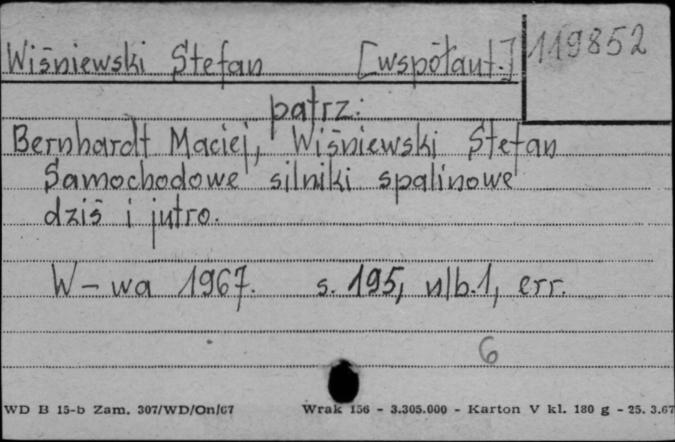 Wiśniewski Stefan [współaut.] 119852
patrz:
Bernhardt Maciej, Wiśniewski Stefan
Samochodowe silniki spalinowe
dziś i jutro.
W-wa 1967. s. 195, nlb. 1, err.
6
WD B 15-b Zam. 307/WD/On/67 Wrak 156 - 3.305.000 - Karton V kl. 180 g - 25. 3.67